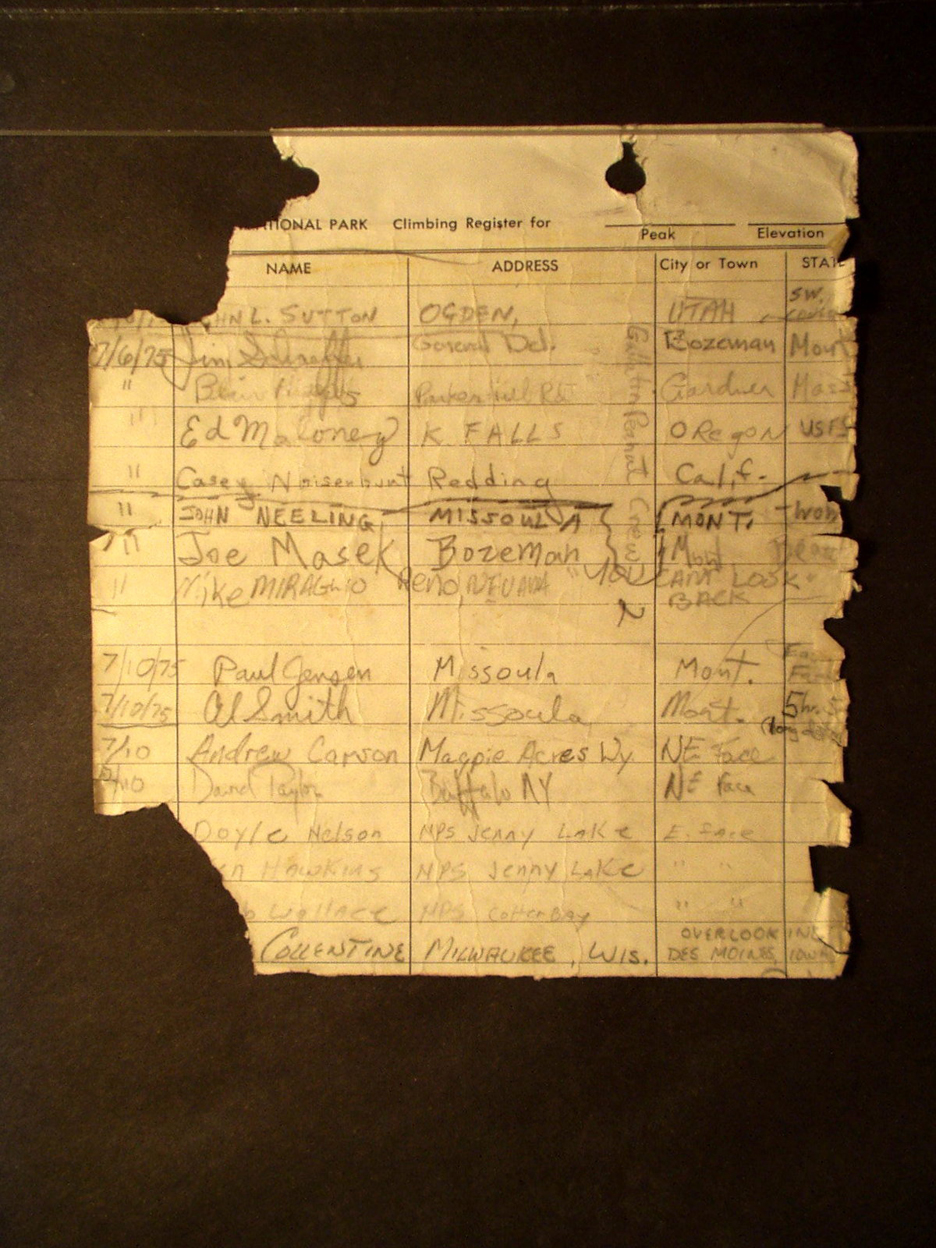 TIONAL PARK Climbing Register for
Peak Elevation
NAME ADDRESS City or Town STATE
HN L. SUTTON OGDEN, UTAH SW.
7/6/75 Jim General Del. Bozeman Mont
" Blair Parker Hill Rd Gardner Mass
" Ed Maloney K. FALLS OREGON USFS
" Casey Redding Calif.
" JOHN NEELING, MISSOULA MONT.
" Joe Masek Bozeman Mont
" Mike MIRAGLIO RENO, NEVADA "YOU CANT LOOK
BACK
Peanut Crew
7/10/75 Paul Jensen Missoula Mont.
7/10/75 Al Smith Missoula, Mont. 5hr.
7/10 Andrew Carson Magpie Acres Wy. NE Face
7/10 David Taylor Buffalo NY NE Face
Doyle Nelson NPS Jenny Lake E. face
n Hawkins NPS Jenny Lake " "
b Wallace NPS Colter BAY " "
COLLENTINE MILWAUKEE, WIS. OVERLOOKING
DES MOINES, IOWA